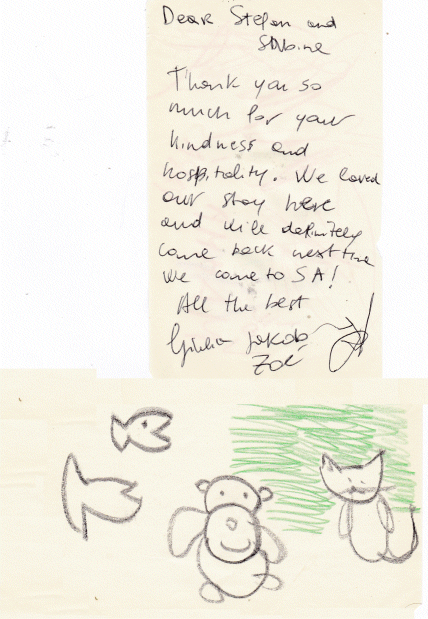 Dear Stefan and
Sabine
Thank you so
much for your
kindness and
hospitality. We loved
our stay here
and will definitely
come back next time
we come to SA!
All the best
Giulia Jakob
Zoé